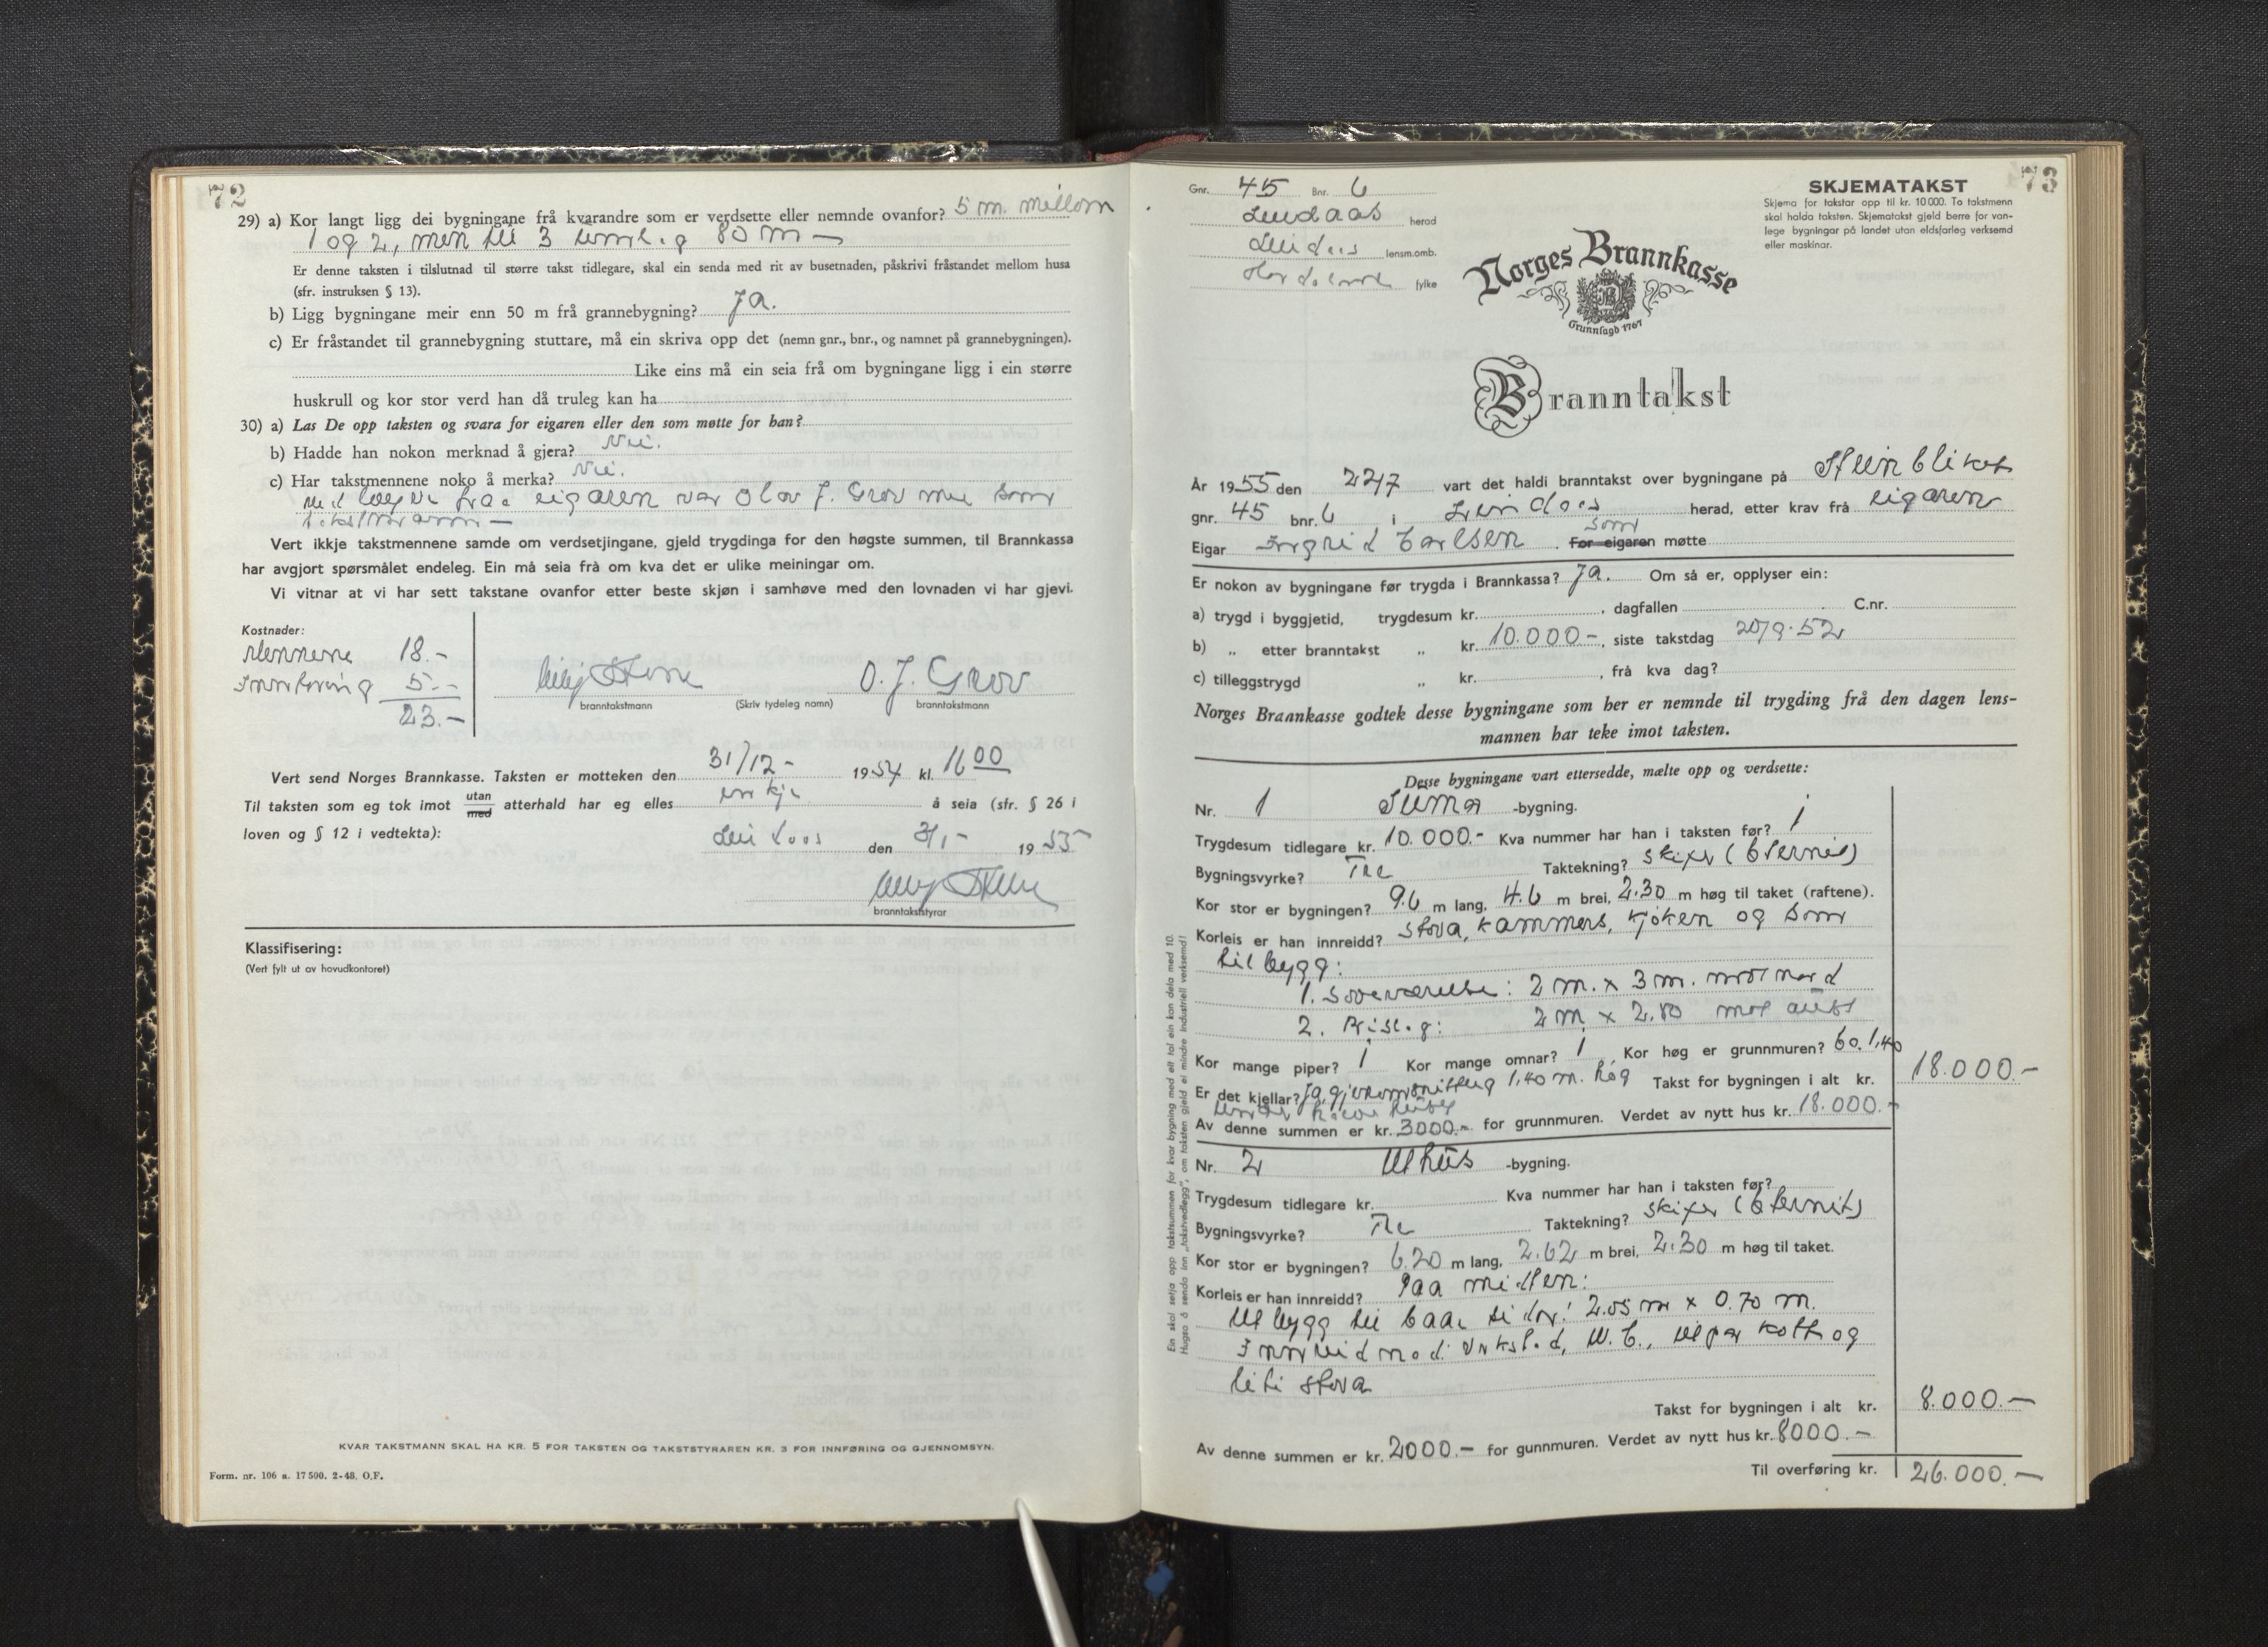 72
29) a) Kor langt ligg dei bygningane frå kvarandre som er verdsette eller nemnde ovanfor? 5 m. millom
1 og 2, men til 3 umlag 80 m —
Er denne taksten i tilslutnad til større takst tidlegare, skal ein senda med rit av busetnaden, påskrivi fråstandet mellom husa
(sfr. instruksen § 13).
b) Ligg bygningane meir enn 50 m frå grannebygning? Ja.
c) Er fråstandet til grannebygning stuttare, må ein skriva opp det (nemn gnr., bnr., og namnet på grannebygningen).
Like eins må ein seia frå om bygningane ligg i ein større
huskrull og kor stor verd han då truleg kan ha
30) a) Las De opp taksten og svara for eigaren eller den som møtte for han?
b) Hadde han nokon merknad å gjera? Nei.
c) Har takstmennene noko å merka? Nei.
fraa eigaren var Olav J. Grov som
takstmann —
Vert ikkje takstmennene samde om verdsetjingane, gjeld trygdinga for den høgste summen, til Brannkassa
har avgjort spørsmålet endeleg. Ein må seia frå om kva det er ulike meiningar om.
Vi vitnar at vi har sett takstane ovanfor etter beste skjøn i samhøve med den lovnaden vi har gjevi.
Kostnader:
Mennene 18.-
Innføring 5.-
23.-
O. J. Grov
branntakstmann (Skriv tydeleg namn) branntakstmann
Vert send Norges Brannkasse. Taksten er motteken den 31/12- 1954 kl. 16 00
Til taksten som eg tok imot utan med atterhald har eg elles inkje å seia (sfr. § 26 i
loven og § 12 i vedtekta):
Lindaas den 3/1- 1955
branntakststyrar
Klassifisering:
(Vert fylt ut av hovudkontoret)
KVAR TAKSTMANN SKAL HA KR. 5 FOR TAKSTEN OG TAKSTSTYRAREN KR. 3 FOR INNFØRING OG GJENNOMSYN.
Form. nr. 106 a. 17 500. 2-48. O.F.
73
Gnr. 45 Bnr. 6
Lindaas herad
Lindaas lensm.omb.
Hordaland fylke
SKJEMATAKST
Skjema for takstar opp til kr. 10 000. To takstmenn
skal halda taksten. Skjematakst gjeld berre for van-
lege bygningar på landet utan eldsfarleg verksemd
eller maskinar.
Norges Brannkasse
Grunnlagd 1767
Branntakst
År 1955 den 22/7 vart det haldi branntakst over bygningane på
gnr. 45 bnr. 6 i Lindaas herad, etter krav frå eigaren
Eigar Ingrid Carlsen. For eigaren som møtte
Er nokon av bygningane før trygda i Brannkassa? Ja. Om så er, opplyser ein:
a) trygd i byggjetid, trygdesum kr. , dagfallen C.nr.
b) „ etter branntakst „ kr. 10.000.-, siste takstdag 20/9-52
c) tilleggstrygd „ kr. , frå kva dag?
Norges Braankasse godtek desse bygningane som her er nemnde til trygding frå den dagen lens-
mannen har teke imot taksten.
Desse bygningane vart ettersedde, mælte opp og verdsette:
Nr. 1 -bygning.
Trygdesum tidlegare kr. 10.000.- Kva nummer har han i taksten før? 1
Bygningsvyrke? Tre Taktekning? skifer (Eternit)
Kor stor er bygningen? 9.6 m lang, 4.6 m brei, 2.30 m høg til taket (raftene).
Korleis er han innreidd? Stova, kammers, kjøken og som
tilbygg:
1. Soveværelse: 2 m. x 3 m. mot nord
2. Bislag: 2 m x 2.80 mot aust
Kor mange piper? 1 Kor mange omnar? 1 Kor høg er grunnmuren? 60. 1,40
Er det kjellar? Ja, gjenomsnittleg 1,40 m. høg Takst for bygningen i alt kr. 18.000.-
under halve huset
Av denne summen er kr. 3000.- for grunnmuren. Verdet av nytt hus kr. 18.000.-
Nr. 2 Uthus -bygning.
Trygdesum tidlegare kr. Kva nummer har han i taksten før?
Bygningsvyrke? Tre Taktekning? skifer (Eternit)
Kor stor er bygningen? 6.20 m lang, 2.62 m brei, 2.30 m høg til taket.
Korleis er han innreidd? Paa midten:
Utbygg til baae sidor: 2.05 m x 0.70 m.
Innreid med vedskot, W.C., og
liti stova
Takst for bygningen i alt kr. 8.000.-
Av denne summen er kr. 2000.- for gunnmuren. Verdet av nytt hus kr. 8000.-
Til overføring kr. 26.000.-
Ein skal setja opp takstsummen for kvar bygning med eit tal ein kan dela med 10.
Hugso å senda inn „takstvedlegg", om taksten gjeld ei mindre industriell verksemd!